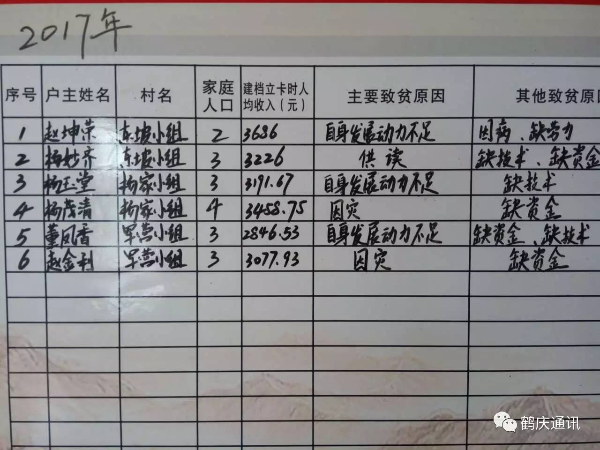 2017年
序号 户主姓名 村名 家庭人口 建档立卡时人均收入(元) 主要致贫原因 其他致贫原
1 赵坤荣 东坡小组 2 3686 自身发展动力不足 因病、缺劳力
2 杨妙齐 东坡小组 3 3226 供读 缺技术、缺资金
3 杨玉堂 杨家小组 3 3191.67 自身发展动力不足 缺技术
4 杨茂清 杨家小组 4 3458.75 因灾 缺资金
5 董凤香 军营小组 3 2846.53 自身发展动力不足 缺资金、缺技术
6 赵金利 军营小组 3 3077.93 因灾 缺资金
鹤庆通讯